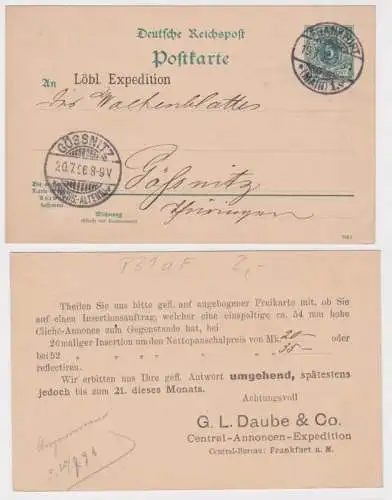 Deutsche Reichspost
Postkarte
FRANKFURT
(MAIN) 1.
5
An Löbl. Expedition
des Wochenblattes
GÖSSNITZ
20.7.96 8-9V
Gössnitz
Thüringen
Wohnung
P31aF 2,-
Theilen Sie uns bitte gefl. auf angebogener Freikarte mit, ob Sie
auf einen Insertionsauftrag, welcher eine einspaltige ca. 54 mm hohe
Cliché-Annonce zum Gegenstande hat, bei
20maliger Insertion um den Nettopauschalpreis von Mk. 20 - oder
bei 52 „ „ „ „ „ 35 -
reflectiren.
Wir erbitten uns Ihre gefl. Antwort umgehend, spätestens
jedoch bis zum 21. dieses Monats.
Achtungsvoll
G. L. Daube & Co.
Central-Annoncen-Expedition
Central-Bureau: Frankfurt a. M.
Angenommen